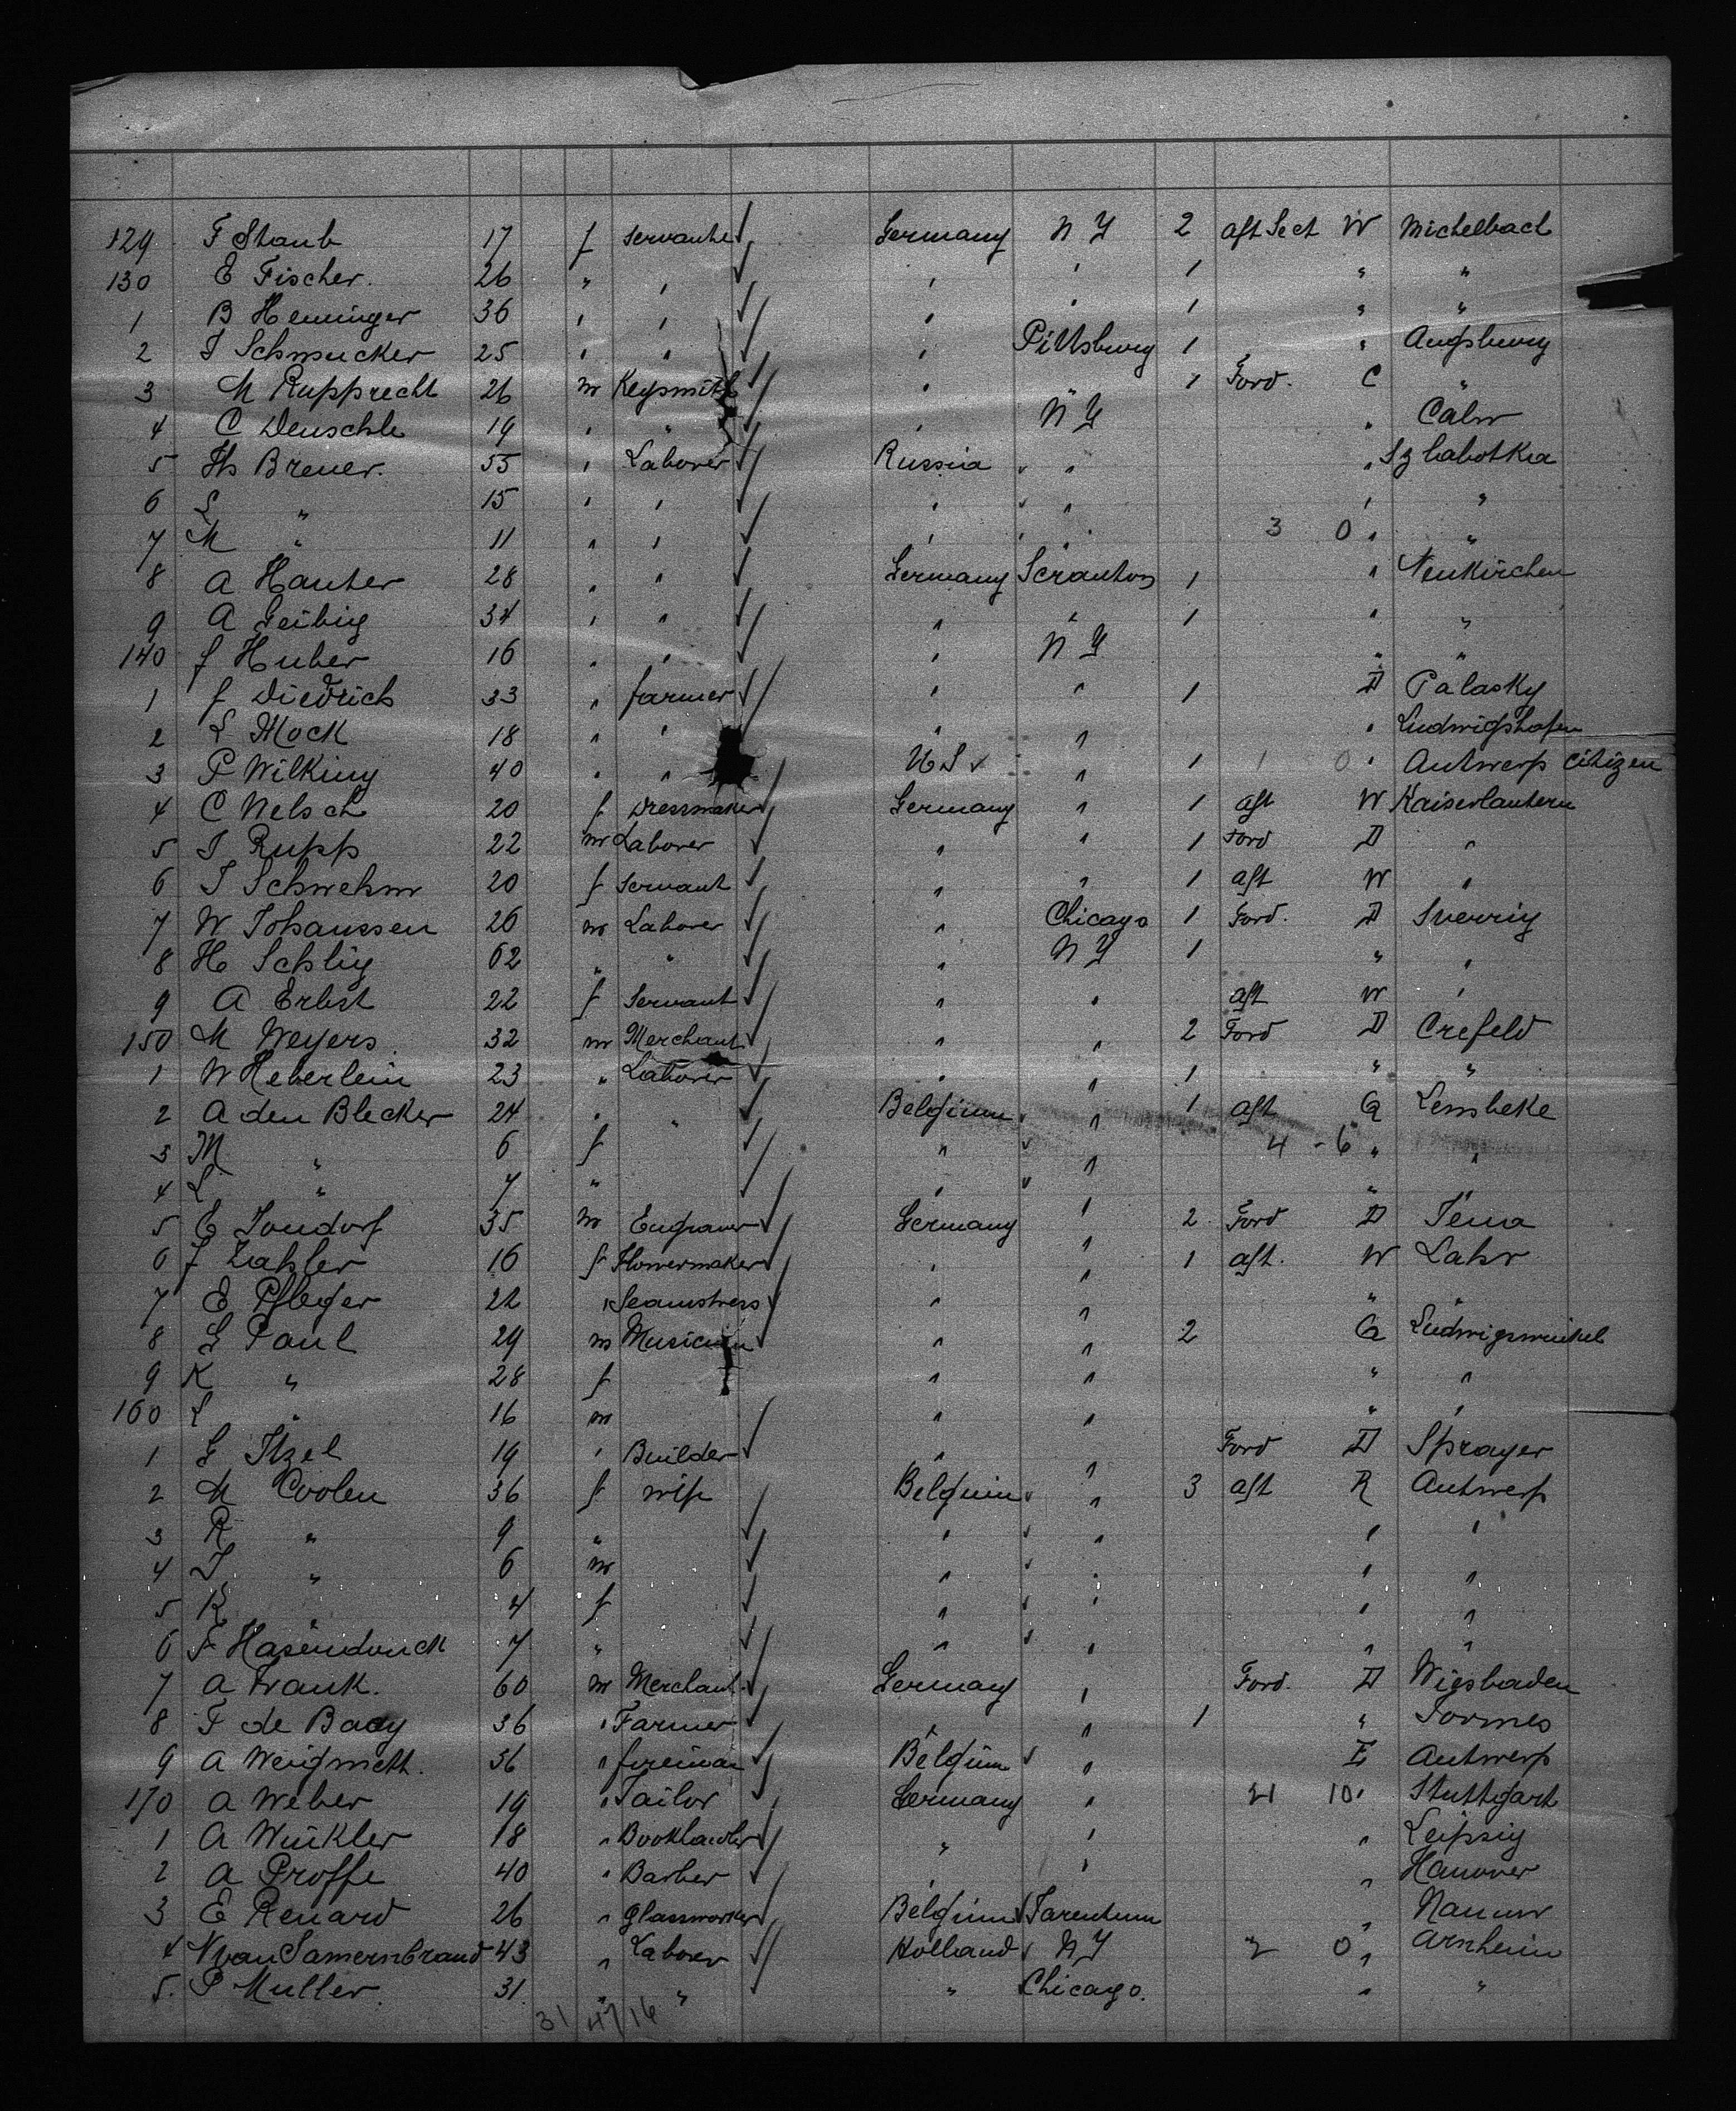 129 F Staub 17 f Servante Germany N Y 2 aft Sect W Michelbach
130 E Fischer. 26 " " ' ' 1 " "
1 B Henninger 36 ' ' ' ' 1 " "
2 J Schmucker 25 ' " ' Pittsburg 1 ' Augsburg
3 M Rupprecht 26 m Keysmith ' " 1 Ford. C "
4 C Deuschle 19 ' " ' N Y " Calw
5 Ths Breuer. 55 ' Laborer Russia " " Szlabotka
6 L " 15 ' ' ' ' ' "
7 M " 11 " ' ' ' 3 0 ' "
8 A Hauter 28 ' " Germany Scranton 1 ' Neukirchen
9 A Geibig 34 ' " " " 1 ' "
140 f Huber 16 ' ' ' N Y " "
1 f Diedrich 33 ' farmer ' " 1 D Palasky
2 L Mock 18 " ' " " ' Ludwigshafen
3 P Wilking 40 " " U S " 1 1 0 ' Antwerp citizen
4 C Nelsch 20 f Dressmaker Germany " 1 aft W Kaiserlautern
5 J Rupp 22 m Laborer " " 1 Ford D "
6 J Schwehm 20 f Servant " " 1 aft W "
7 W Johanssen 26 m Laborer " Chicago 1 Ford. D Sverrig
8 H Schlig 62 " " " N Y 1 " '
9 A Erbst 22 f Servant " " aft W '
150 M Weyers 32 m Merchant " " 2 Ford D Crefeld
1 W Heberlein 23 " Laborer " " 1 " "
2 A den Blecker 24 ' " Belgium " 1 aft G Lembeke
3 M " 6 f " " 4 - 6 " "
4 L " 7 " ' " '
5 E Jondorf 35 m Engraver Germany ' 2 Ford D Jena
6 f Zahler 16 f Flowermaker ' " 1 aft. W Lahr
7 E Pfleger 22 " Seamstress " " " "
8 L Paul 29 m Musician " " 2 G Ludwigswinkel
9 K " 28 f " " " "
160 L " 16 m " " " '
1 G Itzel 19 ' Builder " " Ford D Sprayer
2 M Coolen 36 f wife Belgium " 3 aft R Antwerp
3 R " 9 " ' " ' '
4 J " 6 m " ' ' "
5 R " 4 f " ' ' "
6 F Hasendonck 7 " " " " "
7 A Frank. 60 m Merchant Germany " Ford. D Wiesbaden
8 F de Baay 36 " Farmer ' " 1 "
9 A 36 " Belgium " E Antwerp
170 A Weber 19 " Tailor Germany " 21 10 ' Stuttgart
1 A Winkler 18 " " ' " Leipsig
2 A Proffe 40 " Barber ' ' " Hanover
3 E Renard 26 " Glassworker Belgium Tarentum " Namur
4 N van Samernbrand 43 " Laborer Holland N Y 2 0 " Arnheim
5. P Muller. 31 " " " Chicago. " "
31 47/16